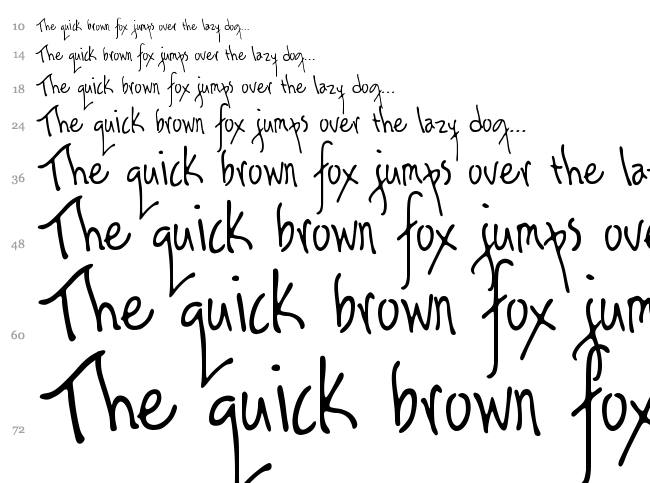 10 The quick brown fox jumps over the lazy dog...
14 The quick brown fox jumps over the lazy dog...
18 The quick brown fox jumps over the lazy dog...
24 The quick brown fox jumps over the lazy dog...
36 The quick brown fox jumps over the la
48 The quick brown fox jumps ove
60 The quick brown fox jum
72 The quick brown fox